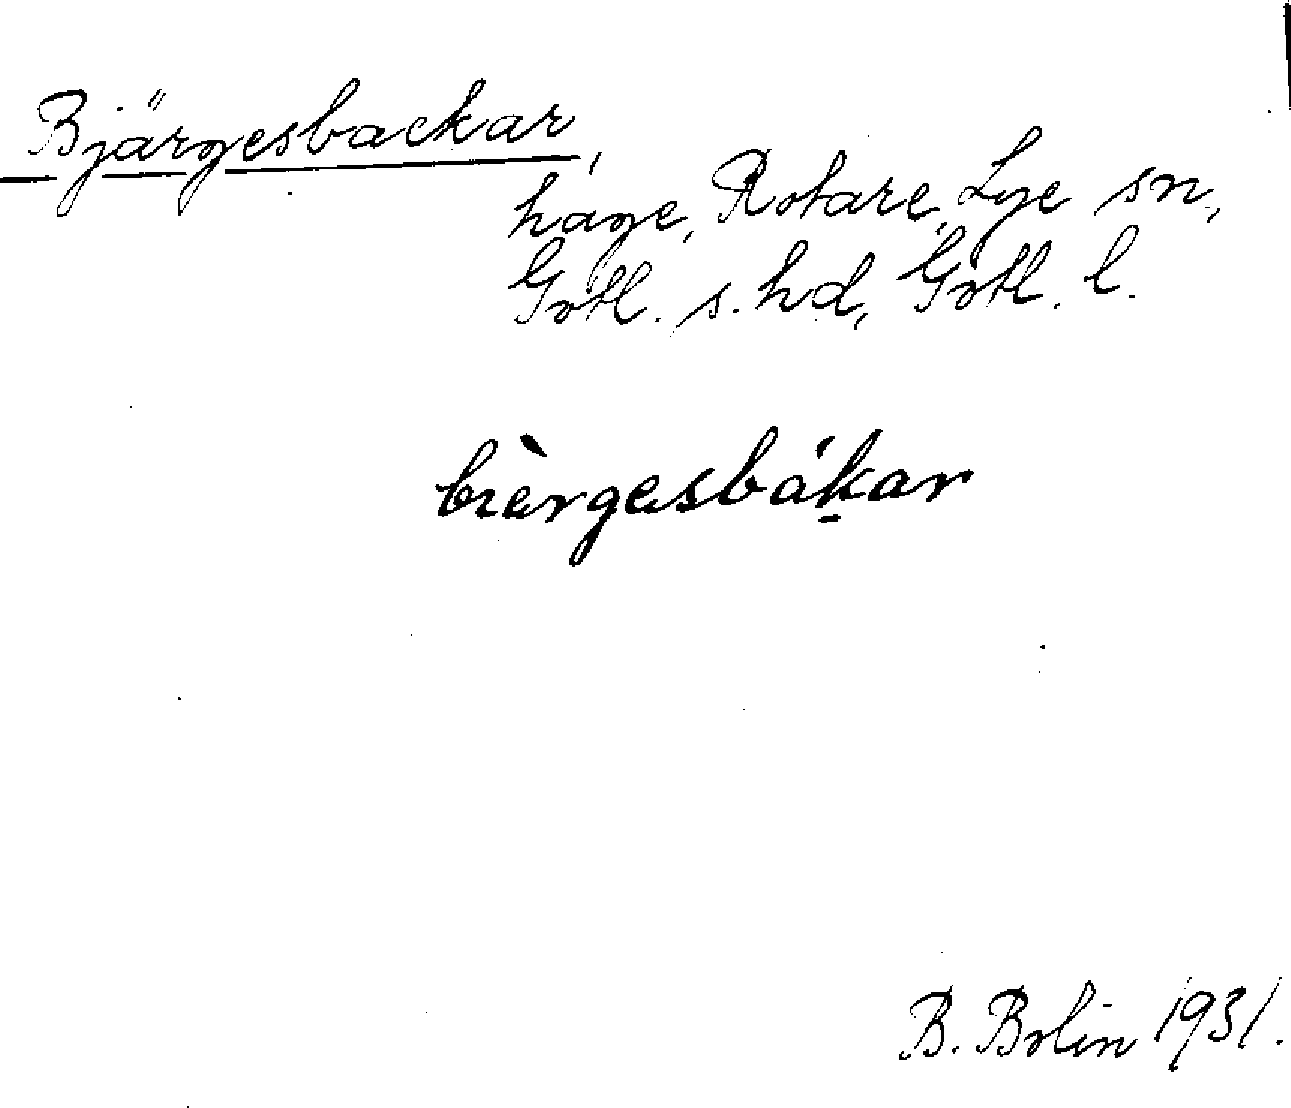 Bjärgesbackar,
hage, Rotare, Lye sn,
Gotl. s. hd, Gotl. l.
bièrgasbákar
B. Bolin 1931.